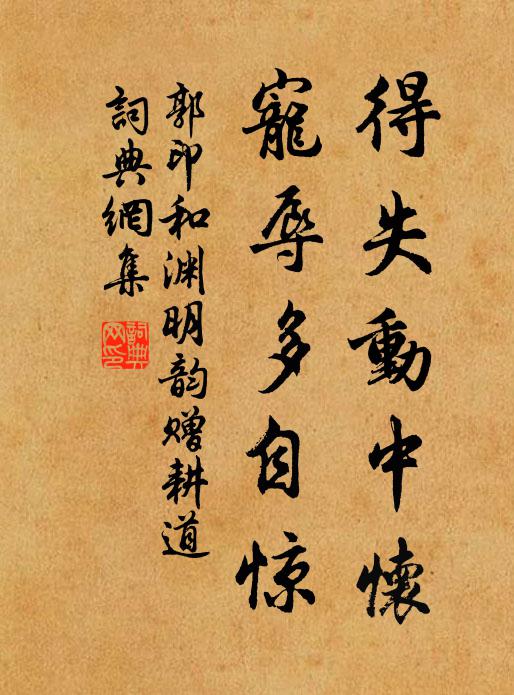 得失動中懷
寵辱多自惊
郭印和渊明韵赠耕道
詞典網集
詞典网印